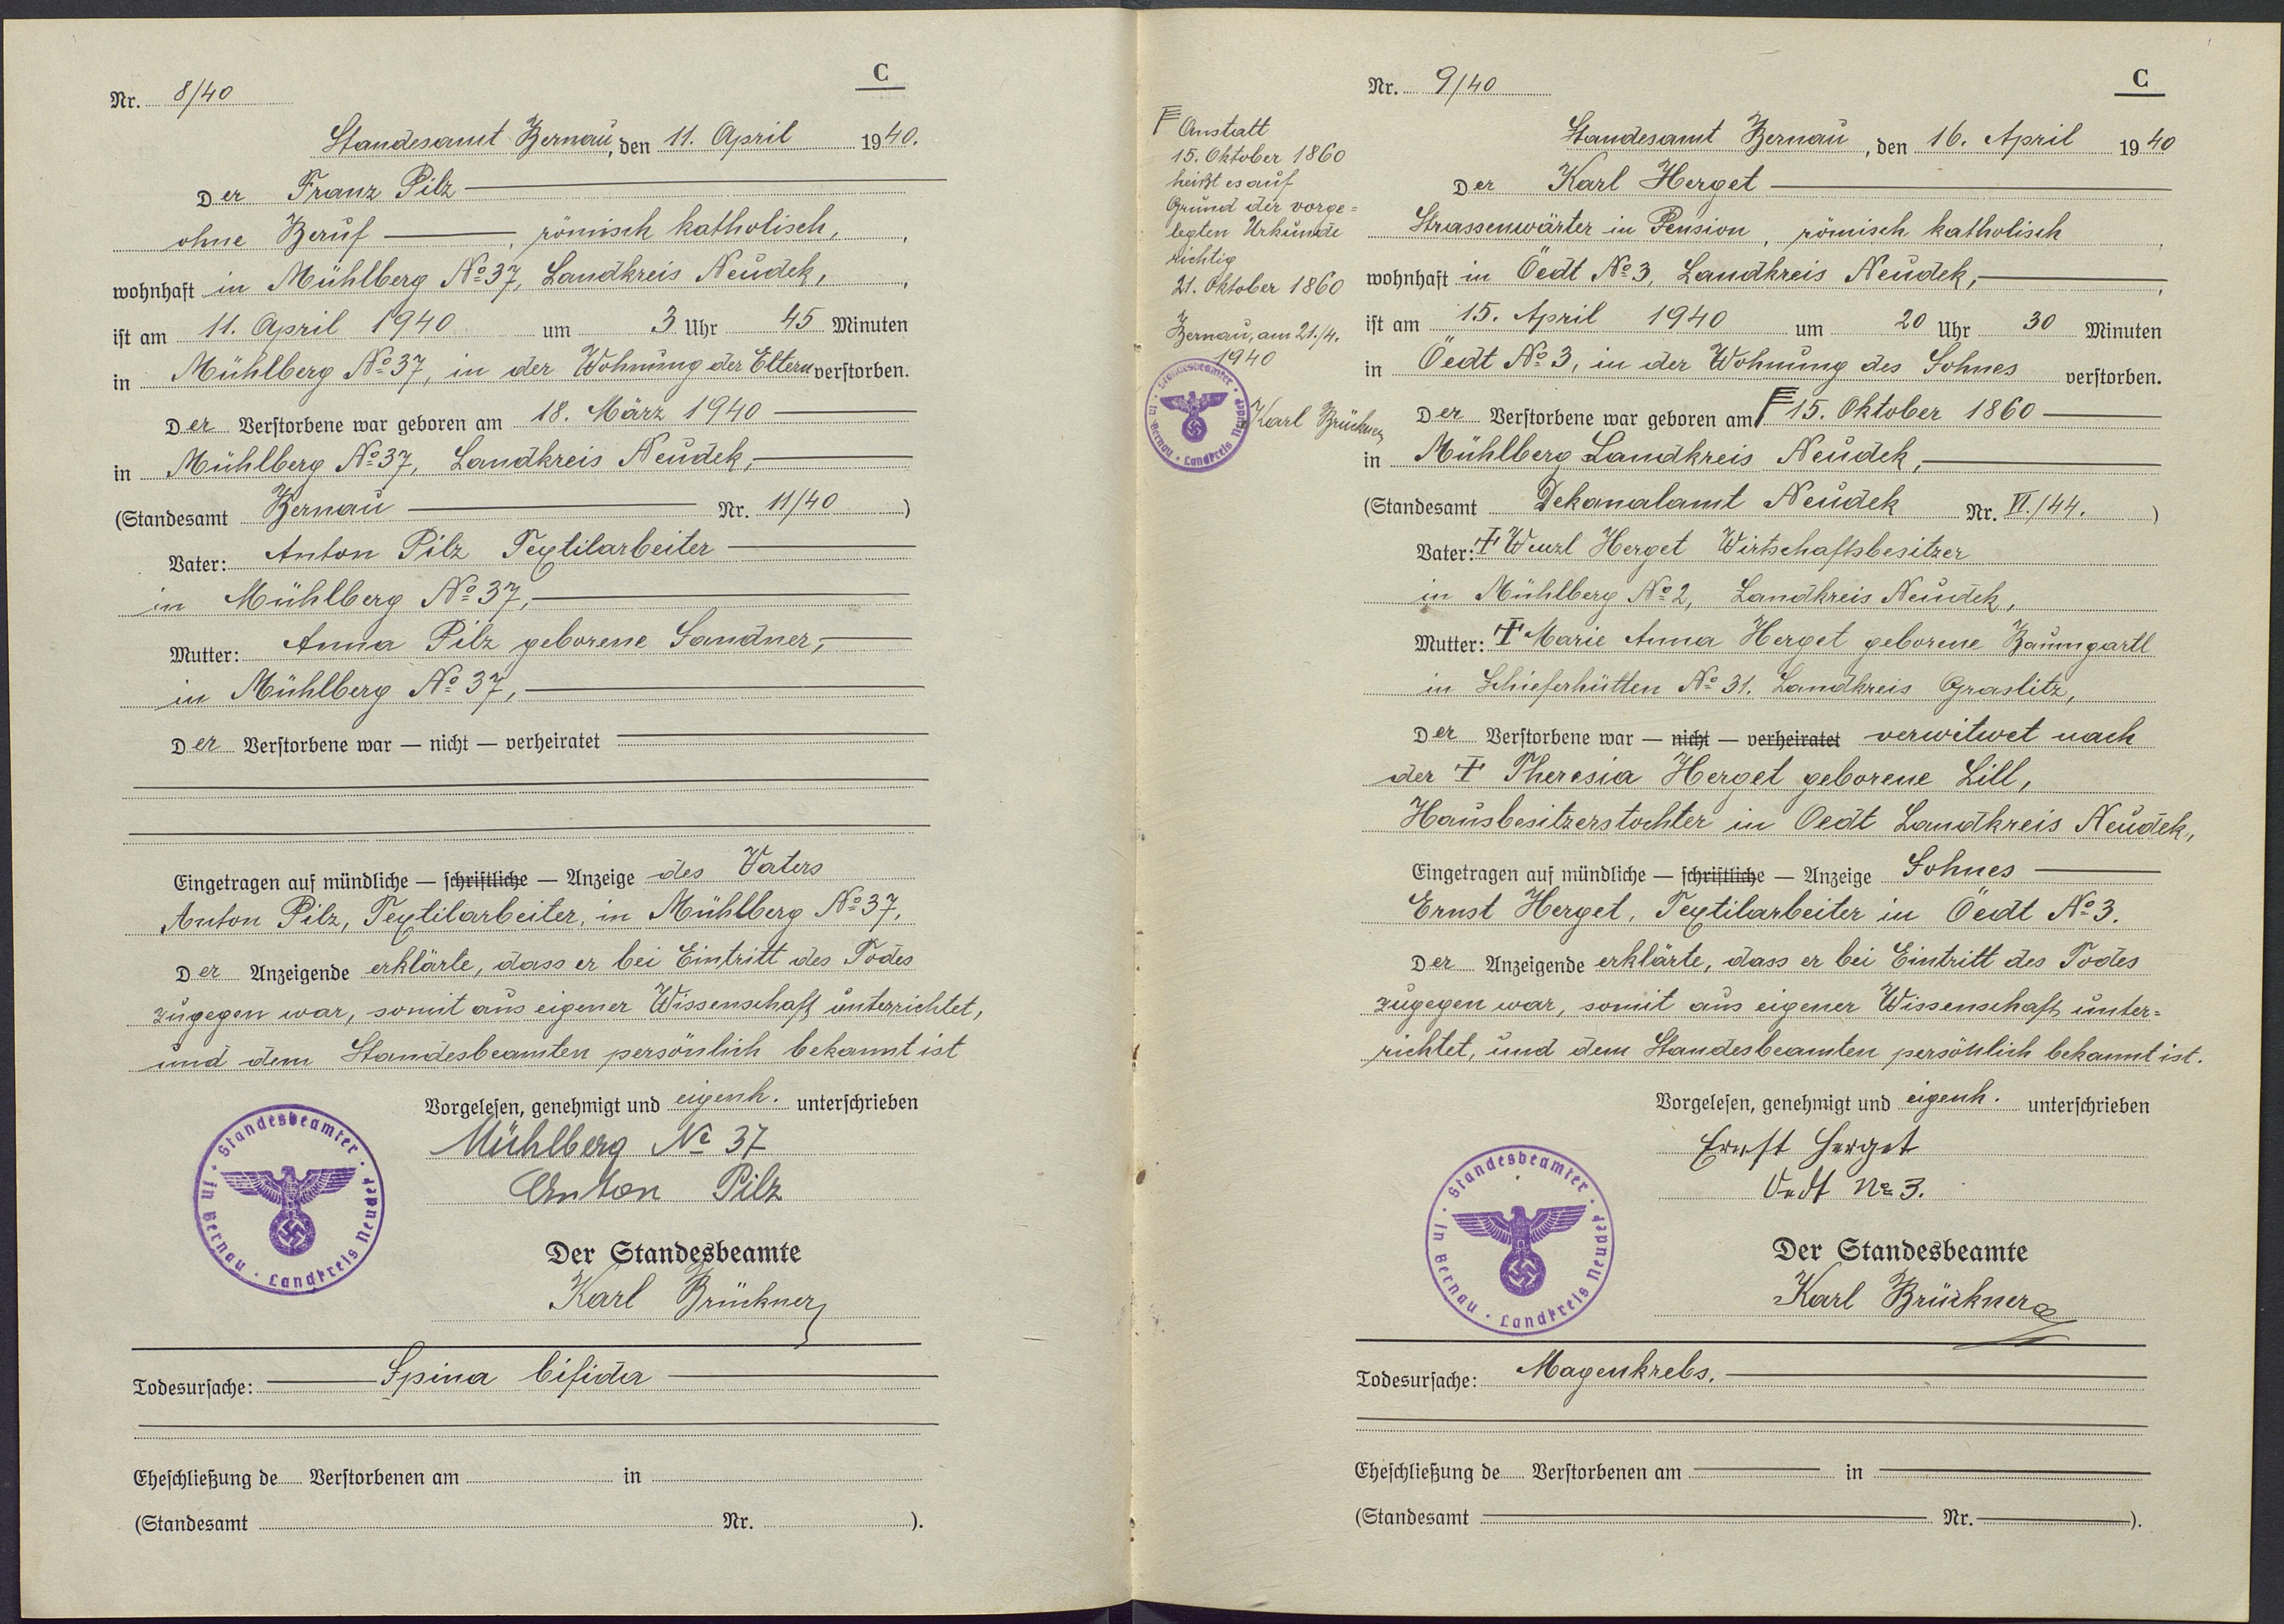 C
Nr. 8/40
Standesamt Bernau, den 11. April 1940.
Der Franz Pilz
ohne Beruf, römisch katholisch,
wohnhaft in Mühlberg No 37, Landkreis Neudek,
ist am 11. April 1940 um 3 Uhr 45 Minuten
in Mühlberg No 37, in der Wohnung der Eltern verstorben.
Der Verstorbene war geboren am 18. März 1940
in Mühlberg No 37, Landkreis Neudek,
(Standesamt Bernau Nr. 11/40)
Vater: Anton Pilz Textilarbeiter
in Mühlberg No 37,
Mutter: Anna Pilz geborene Sandner,
in Mühlberg No 37,
Der Verstorbene war — nicht — verheiratet
Eingetragen auf mündliche — schriftliche — Anzeige des Vaters
Anton Pilz, Textilarbeiter, in Mühlberg No 37.
Der Anzeigende erklärte, dass er bei Eintritt des Todes
zugegen war, somit aus eigener Wissenschaft unterrichtet,
und dem Standesbeamten persönlich bekannt ist
Vorgelesen, genehmigt und eigenh. unterschrieben
Mühlberg No 37
Anton Pilz
Standesbeamter · in Bernau · Landkreis Neudek
Der Standesbeamte
Karl Brückner
Todesursache: Spina bifida
Eheschließung de Verstorbenen am in
(Standesamt Nr. ).
C
Nr. 9/40
Standesamt Bernau, den 16. April 1940
Der Karl Herget
Strassenwärter in Pension, römisch katholisch,
wohnhaft in Öedt No 3, Landkreis Neudek,
ist am 15. April 1940 um 20 Uhr 30 Minuten
in Öedt No 3, in der Wohnung des Sohnes verstorben.
Der Verstorbene war geboren am 15. Oktober 1860
in Mühlberg Landkreis Neudek,
(Standesamt Dekanalamt Neudek Nr. VI./44.)
Vater: † Wenzl Herget Wirtschaftsbesitzer
in Mühlberg No 2, Landkreis Neudek,
Mutter: † Marie Anna Herget geborene Baumgartl
in Schieferhütten No 31. Landkreis Graslitz,
Der Verstorbene war — nicht — verheiratet verwitwet nach
der † Theresia Herget geborene Lill,
Hausbesitzerstochter in Oedt Landkreis Neudek,
Eingetragen auf mündliche — schriftliche — Anzeige Sohnes
Ernst Herget, Textilarbeiter in Öedt No 3.
Der Anzeigende erklärte, dass er bei Eintritt des Todes
zugegen war, somit aus eigener Wissenschaft unter=
richtet, und dem Standesbeamten persönlich bekannt ist.
Vorgelesen, genehmigt und eigenh. unterschrieben
Ernst Herget
Oedt No 3.
Standesbeamter · in Bernau · Landkreis Neudek
Der Standesbeamte
Karl Brückner
Todesursache: Magenkrebs.
Eheschließung de Verstorbenen am in
(Standesamt Nr. ).
Anstatt
15. Oktober 1860
heißt es auf
Grund der vorge=
legten Urkunde
richtig
21. Oktober 1860
Bernau, am 21./4.
1940
Standesbeamter · in Bernau · Landkreis Neudek
Karl Brückner